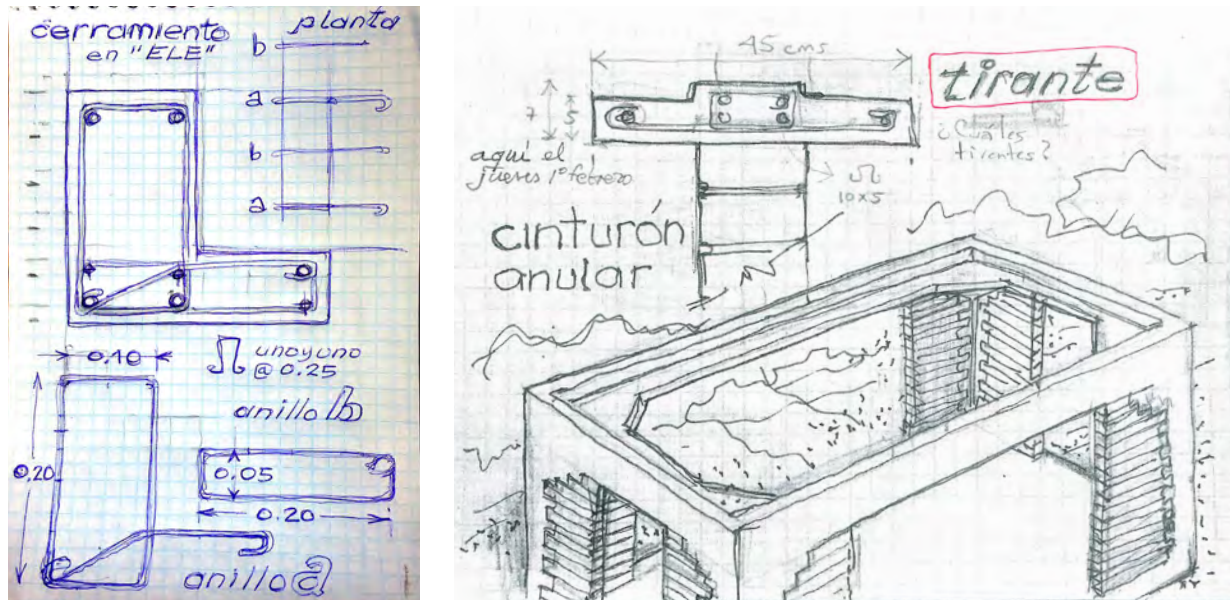 cerramiento
en "ELE"
planta
b
a
b
a
0.10
unoyuno
@ 0.25
anillo b
0.20
0.05
0.20
anillo a
45 cms
tirante
7
5
¿Cuáles
tirentes?
aquí el
jueves 1º febrero
10x5
cinturón
anular